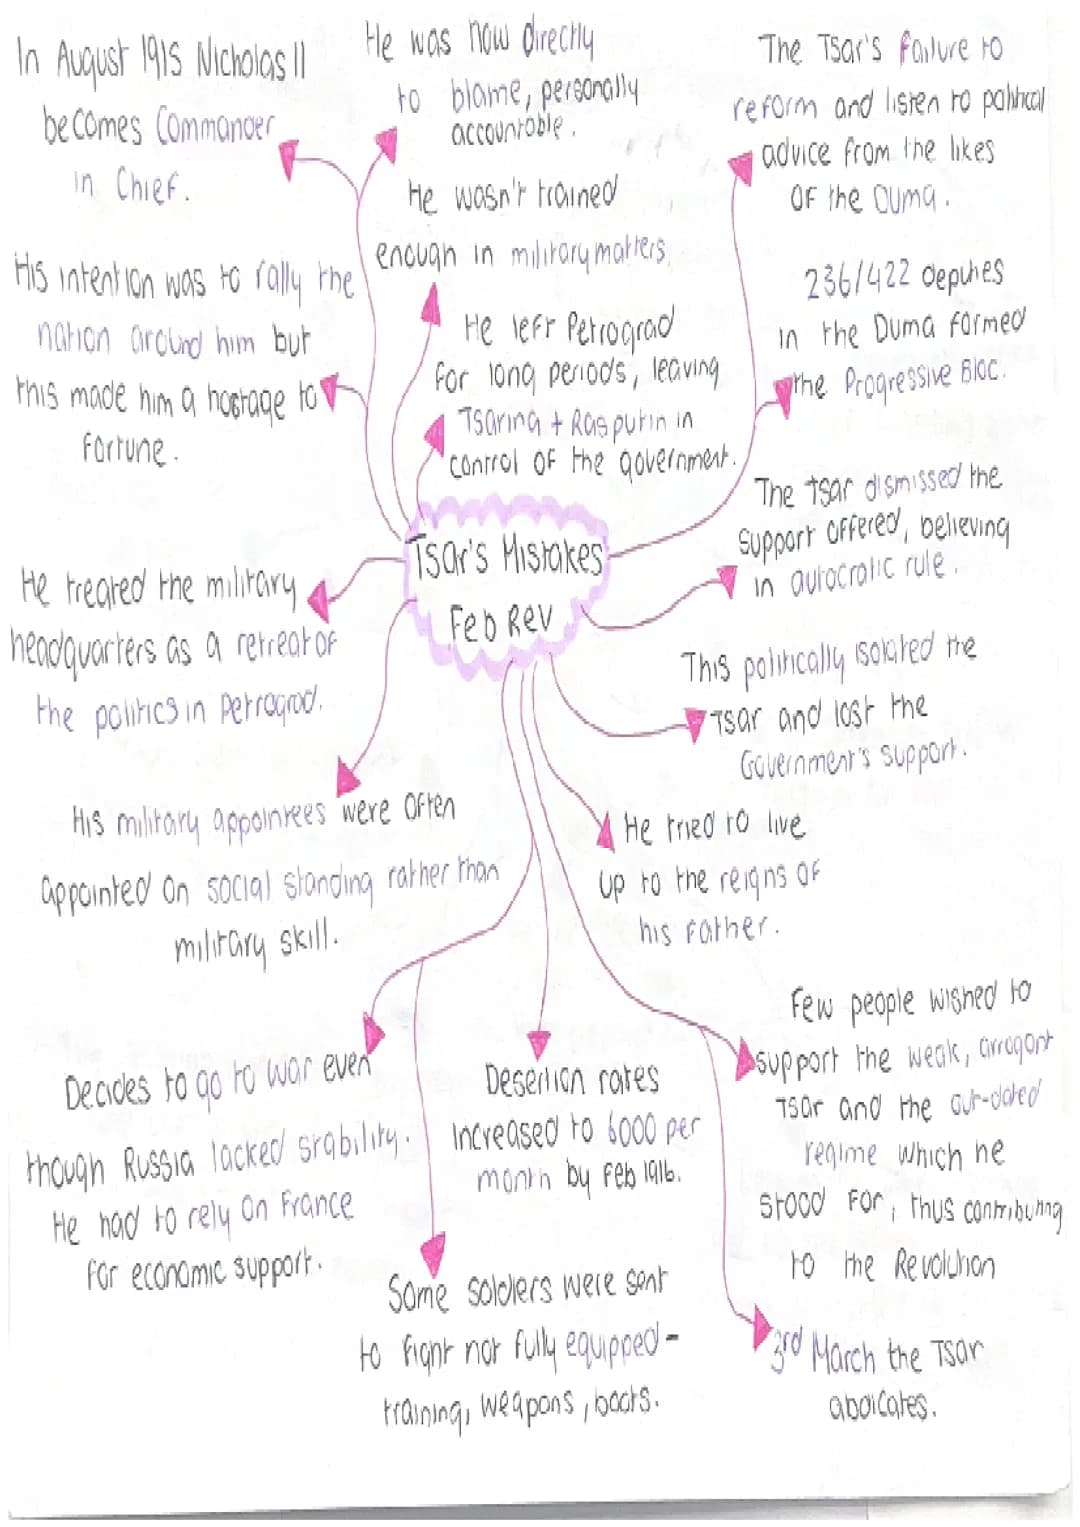 In August 1915 Nicholas II
becomes Commander
in Chief.
He was now directly
to blame, personally
accountable.
The Tsar's failure to
reform and listen to political
advice from the likes
OF the Duma.
He wasn't trained
enough in military matters.
His intention was to rally the
nation around him but
this made him a hostage to
fortune.
He left Petrograd
for long periods, leaving
Tsarina + Rasputin in
control OF the government.
236/422 deputies
in the Duma formed
the Progressive Bloc.
The Tsar dismissed the
support offered, believing
in autocratic rule.
Tsar's Mistakes
Feb Rev
He treated the military
headquarters as a retreat of
the politics in Petrograd.
This politically isolated the
Tsar and lost the
Government's support.
His military appointees were often
appointed on social standing rather than
military skill.
He tried to live
up to the reigns OF
his Father.
Decides to go to war even
though Russia lacked stability.
He had to rely on France
for economic support.
Desertion rates
increased to 6000 per
month by Feb 1916.
Few people wished to
support the weak, arrogant
Tsar and the out-dated
regime which he
stood For, thus contributing
to the Revolution
Some soldiers were sent
to fight not fully equipped -
training, weapons, boots.
3rd March the Tsar
abdicates.